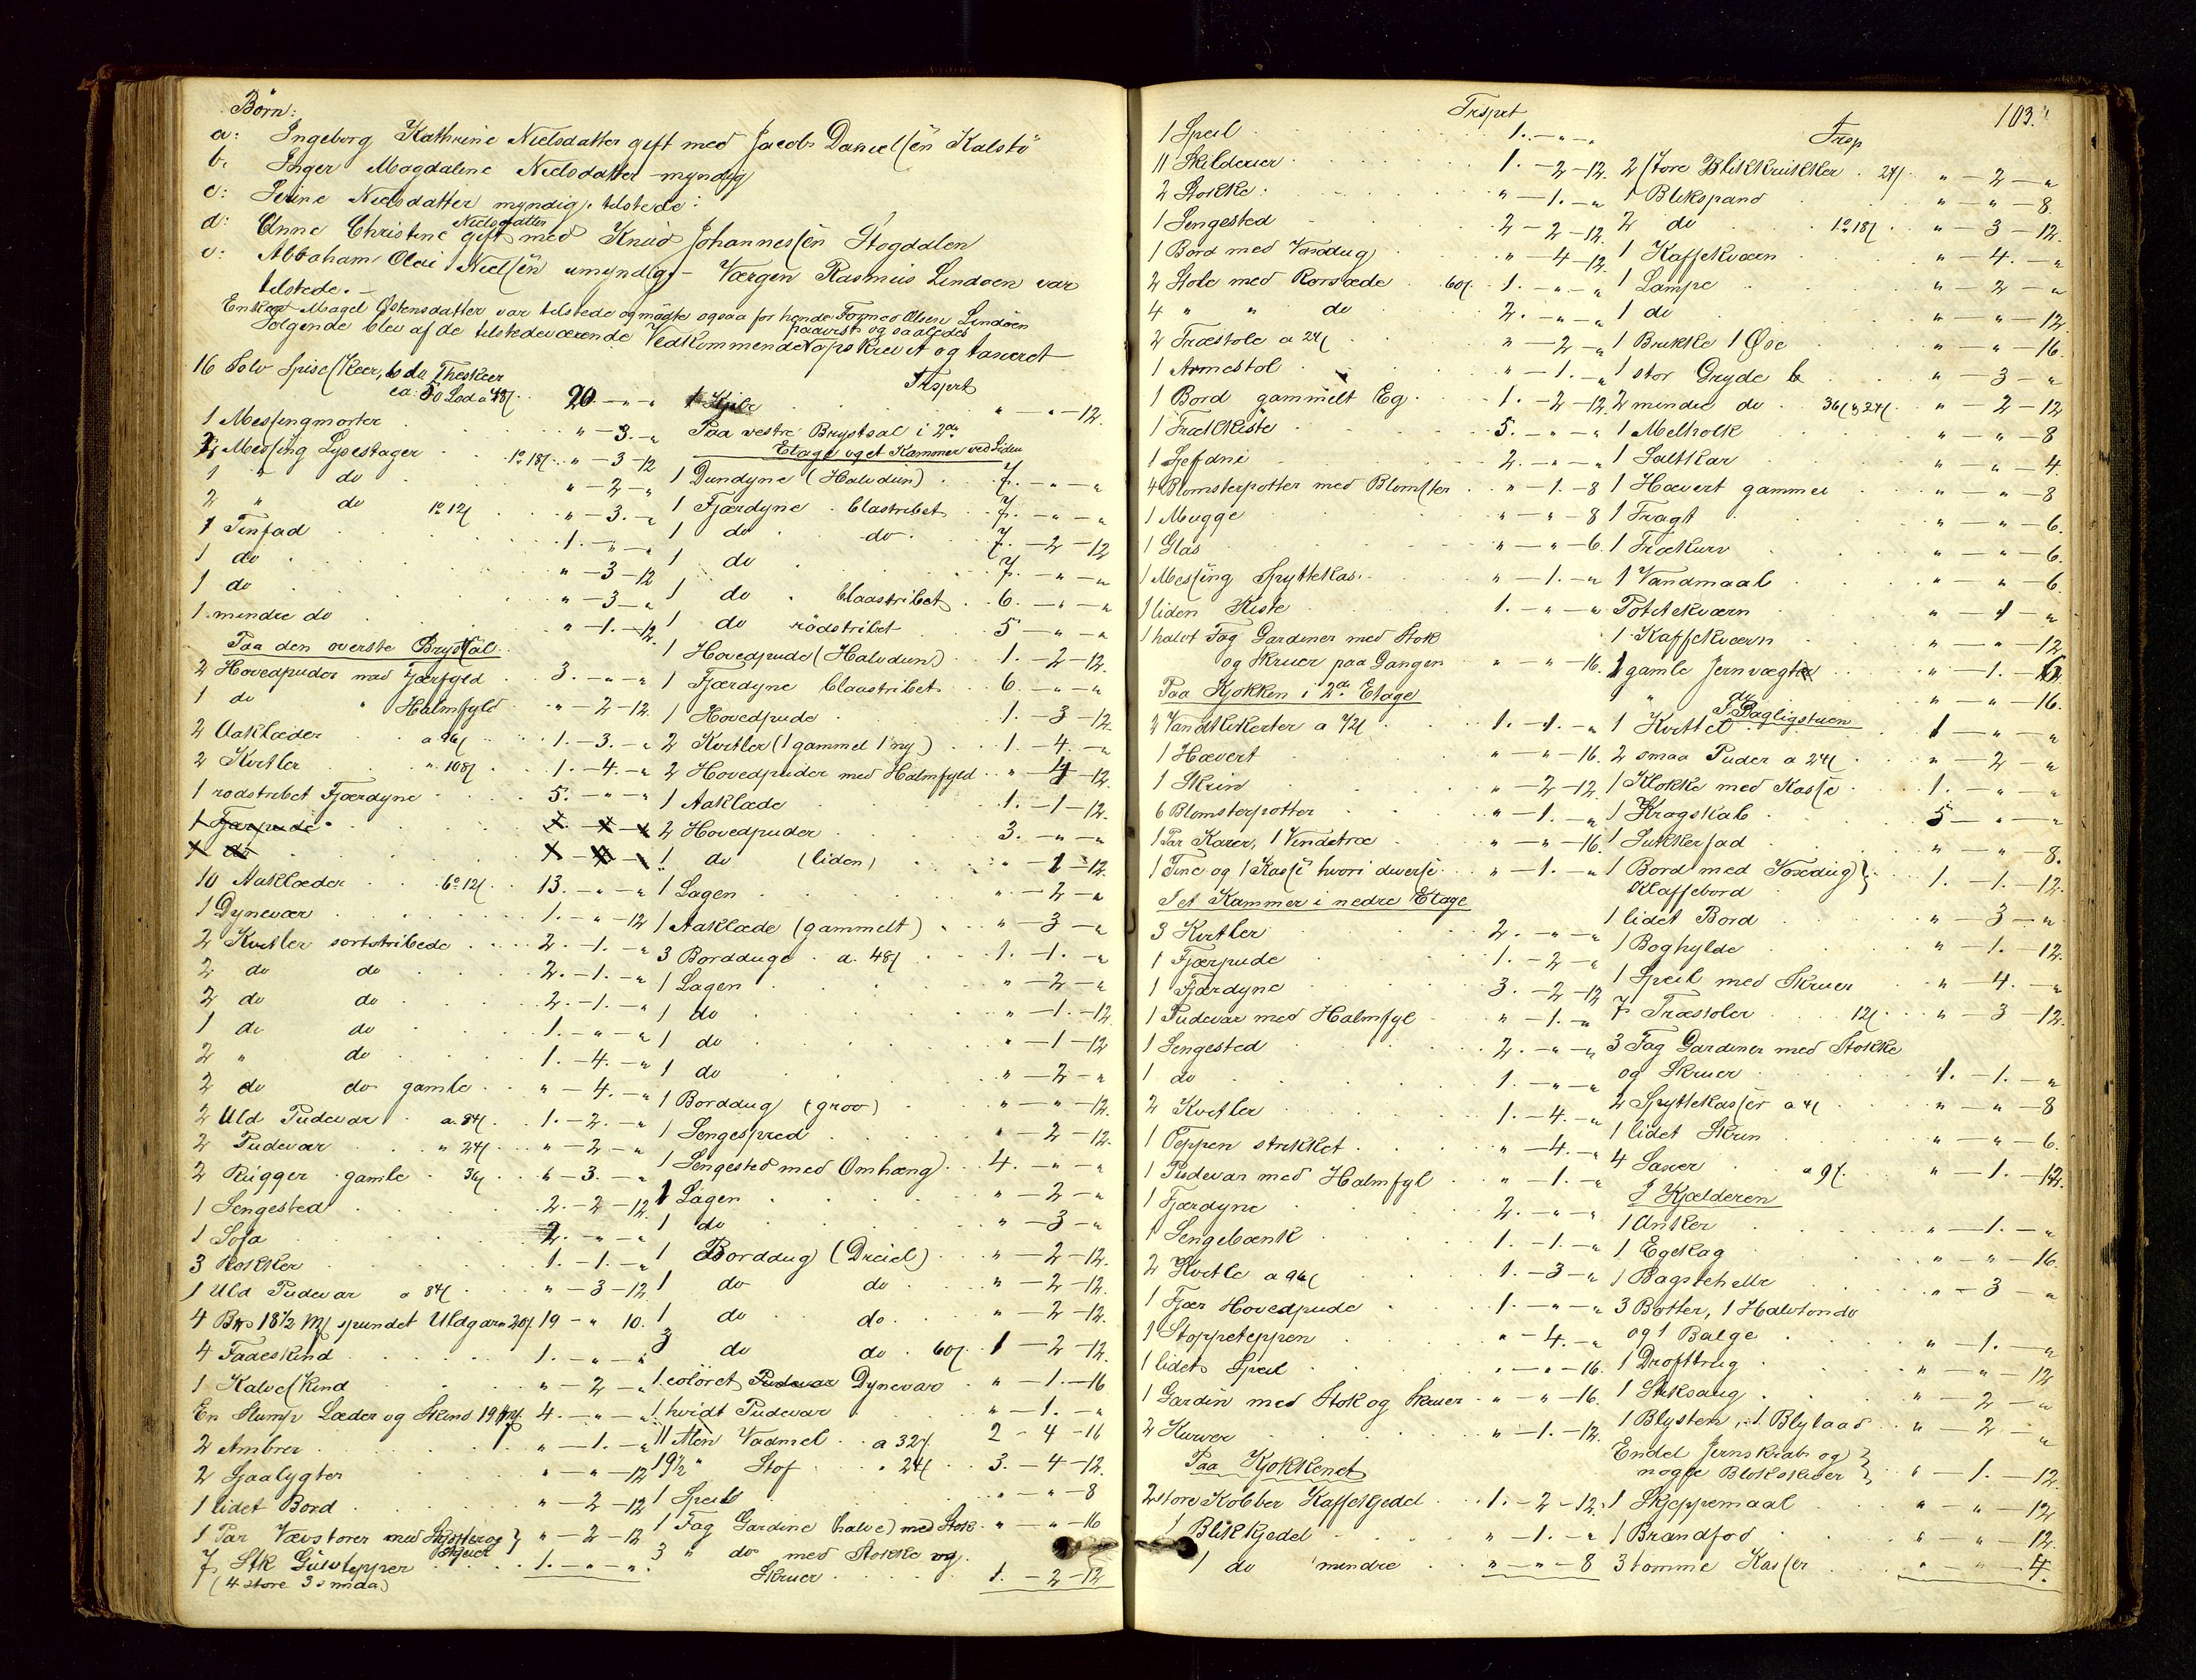 Börn:
a: Ingeborg Kathrine Nielsdatter gift med Jacob Danielsen Kalstö
b: Inger Magdalene Nielsdatter myndig
c: Serine Nielsdatter myndig. tilstede:
d: Anne Christine Nielsdatter gift med Knud Johannesen Stogdalen
e: Abraham Olai Nielsen umyndig - Værgen Rasmus Lindöen var
tilstede. -
Enken Magel Östensdatter var tilstede og mödte ogsaa for hende Tormod Olsen Lindöen
Fölgende blev af de tilstedeværende Vedkommende paavist og saaledes opskrevet og taxeret
16 Sölv Spiseskeer, 6 do Theskeer
ca: 50 Lod a 48ß. 20. - " - "
1 Messingmorter " - 3. - "
2 Messing Lysestager 1 a 18ß. " - 3 - 12
1 " do " - 2 - "
2 " do 1 a 12ß " - 3. - "
1 Tinfad 1. - " - "
1 do " - 3 - 12
1 do " - 3 - "
1 mindre do " - 1. - 12.
Paa den overste Brystsal
2 Hovedpuder med Fjærfyld 3. - " - "
1 do " Halmfyld " - 2 - 12.
2 Aaklæder a 96ß 1. - 3. - "
2 Kvitler a 108ß 1. - 4. - "
1 rödstribet Fjærdyne 5. - " - "
1 Fjærpude
1 do
10 Aaklæder 6 a 12ß 13. - " - "
1 Dynevær 1. - " - 12
2 Kvitler sortstribede 2. - 1. - "
2 do do 2. - 1. - "
2 do do 2. - 1. - "
1 do do 1. - " - "
2 " do 1. - 4. - "
2 do do gamle " - 4. - "
2 Uld Pudevar a 84ß 1. - 2. - "
2 Pudevar " 24ß " - 2 - "
2 Rügger gamle 36ß " - 3. - "
1 Sengested 2. - 2 - 12.
1 Sofa 2. - " - "
3 Rokker 1. - 1. - "
1 Uld Pudevar a 84ß " - 3 - 12
4 Bpd 18 1/2 Mk spundet Uldgarn 20ß 19 - " 10.
4 Faaeskind 1. - " - "
1 Kalveskind " - 2 - "
En Slump Læder og Skind 4. - " - "
2 Ambrer " - 1. - "
2 Sjaalygter " - " - 12
1 lidet Bord " - 2 - 12
1 Par Vævstoler " - 2 - 12
7 Stk Gulvtepper 1. - " - "
(4 store 3 minda)
Trsprt
1 Kjole " - " - 12.
Paa vestre Brystsal i 2de
Etage og et Kammer ved Siden
1 Dundyne (Halvdun) 7. - " - "
1 Fjærdyne blastribet 7. - " - "
1 do do 7. - 2 - 12
1 do 7. - " - "
1 do blaastribet 6. - " - "
1 do rödstribet 5 - " - "
1 Hovedpude (Halvdun) 1. - 2 - 12.
1 Fjærdyne blaastribet 6 - " - "
1 Hovedpude 1. - 3 - 12.
2 Kvitler (1 gammel 1 ny) 1. - 4. - "
2 Hovedpuder med Halmfyld " - 4 - 12.
1 Aaklæde 1. - 1 - 12.
2 Hovedpuder 3. - " - "
1 do (liden) " - 1 - 12.
1 Lagen " - 2 - "
1 Aaklæde (gammelt) " - 3 - "
3 Bordduge a 48ß 1. - 1. - "
1 Lagen " - 2 - "
1 do " - 1. - 12
1 do " - 1 - 12
1 do " - 2 - "
1 Borddug (grov) " - " - 12.
1 Sengespred " - 2 - 12.
1 Sengested med Omhæng 4. - " - "
1 Lagen " - 2 - "
1 do " - 3 - "
1 Borddug (Dreiel) " - 2 - 12.
1 do do " - 2 - 12.
1 do do " - 2 - 12.
3 do do 60ß 1 - 2 - 12.
1 coloret Pudevar Dynevar " - 1. - 16
1 hvidt Pudevar " - 1. - "
11 Alen Vadmel a 32ß 2 - 4 - 16
19 1/2 " Stof a 24ß 3. - 4 - 12.
1 Speil " - " - 8
1 Fag Gardine (halve) med Stok " - " - 16
3 " do med Stokke og
Skruer 1. - 2 - 12
Trsprt
1 Speil 1. - " - "
11 Skilderier 1. - 2 - 12.
2 Stokke " - 1. - "
1 Sengested 2 - 2 - 12.
1 Bord med Voxdug " - 4 - 12.
2 Stole med Rorsæde 60ß 1. - " - "
4 " " do 2. - " - "
2 Træstole a 24ß " - 2 - "
1 Armestol " - 1. - "
1 Bord gammelt Eg 1. - 2 - 12.
1 Trækiste 5. - " - "
1 2. - " - "
4 Blomsterpotter med Blomster " - 1. - 8
1 Mugge " - " - 8
1 Glas " - " - 6.
1 Messing Spyttekas. " - 1. - "
1 liden Kiste 1. - " - "
1 halvt Fag Gardiner med Stok
og Skruer paa Gangen " - " - 16.
Paa Kjökken i 2de Etage
3 a 72ß 1. - 1. - "
1 Hævert " - " - 16.
1 Skrin " - 2 - 12
6 Blomsterpotter " - 1. - "
1 Par Karer, 1 Vendetræ " - " - 16.
1 Tine og 1 Kasse hvori diverse " - 1. - "
I et Kammer i nedre Etage
3 Kvitler 2. - " - "
1 Fjærpude 1. - 2 - "
1 Fjærdyne 3. - 2 - 12
1 Pudevar med Halmfyl " - 1. - "
1 Sengested 2. - " - "
1 do 1. - " - "
2 Kvitler 1. - 4. - "
1 Teppen strikket " - 4. - "
1 Pudevar med Halmfyl " - 1. - "
1 Fjærdyne 2. - " - "
1 Sengebænk 1. - 1. - "
2 Kvitle a 96ß 1. - 3 - "
1 Fjær Hovedpude 1. - " - "
1 Stoppeteppen " - 4. - "
1 lidet Speil " - " - 16.
1 Gardin med Stok og Skruer " - " - 16.
2 Kurver " - 1. - 12.
Paa Kjökkenet
2 store Kobber Kaffekjedel 1. - 2 - 12.
1 Blikkjedel " - 1. - "
1 do mindre " - " - 8
Trsp 103.
2 store Blikkrukker 24ß " - 2 - "
1 Blikspand " - " - 8.
2 do 1 a 18ß " - 3 - 12.
1 Kaffekværn " - 4. - "
1 Lampe " - 2 - "
1 do " - " - 12
1 Brukke 1 Öse " - " - 16.
1 stor Gryde " - 3 - "
2 mindre do 36ß & 24ß " - 2 - 12
1 Melholk " - " - 8
1 Saltkar " - " - 4.
1 Hævert gammel " - " - 8
1 Tragt " - " - 6.
1 Trækurv " - " - 6.
1 Vandmaal " - " - 6
Potetekværn " 1 - "
1 Kaffekværn " - " - 12
2 gamle Jernvægter " - 1. -
" do " - " - 16.
I Dagligstuen
1 Kvittel 1 - " - "
2 smaa Puder a 24ß " - 2 - "
1 Klokke med Kasse 1. - " - "
1 Krogskab 5 - " - "
1 Sukkerfad " - " - 8.
1 Bord med Voxdug
Klaffebord 1. - 1. - 12.
1 lidet Bord " - 3 - "
1 Boghylde " - 1. - 12.
1 Speil med Skruer " - 4. - "
7 Træstoler 12ß " - 3 - 12.
3 Fag Gardiner med Stokke
og Skruer 1. - 1. - "
2 Spyttekasser a 4ß " - " - 8
1 lidet Skrin " - " - 6.
4 Saxer a 9ß " - 1. - 12.
I Kjælderen
1 Anker " - 1. - "
1 Egekag " - " - 16.
1 Bagstehelle " - 3 - "
3 Bötter, 1 Halvtönde
og 1 Balge " - 1. - "
1 Drofttrug " - " - 12
1 Stiksaug " - 2 - "
1 Blysten, 1 Blylaad " - 2 - "
Endel Jernskrab og
nogle Blokskiver " - 1. - 12.
1 Skjeppemaal " - " - 12
1 Brandfod " - " - 12.
3 tomme Kasser " - " - 4.